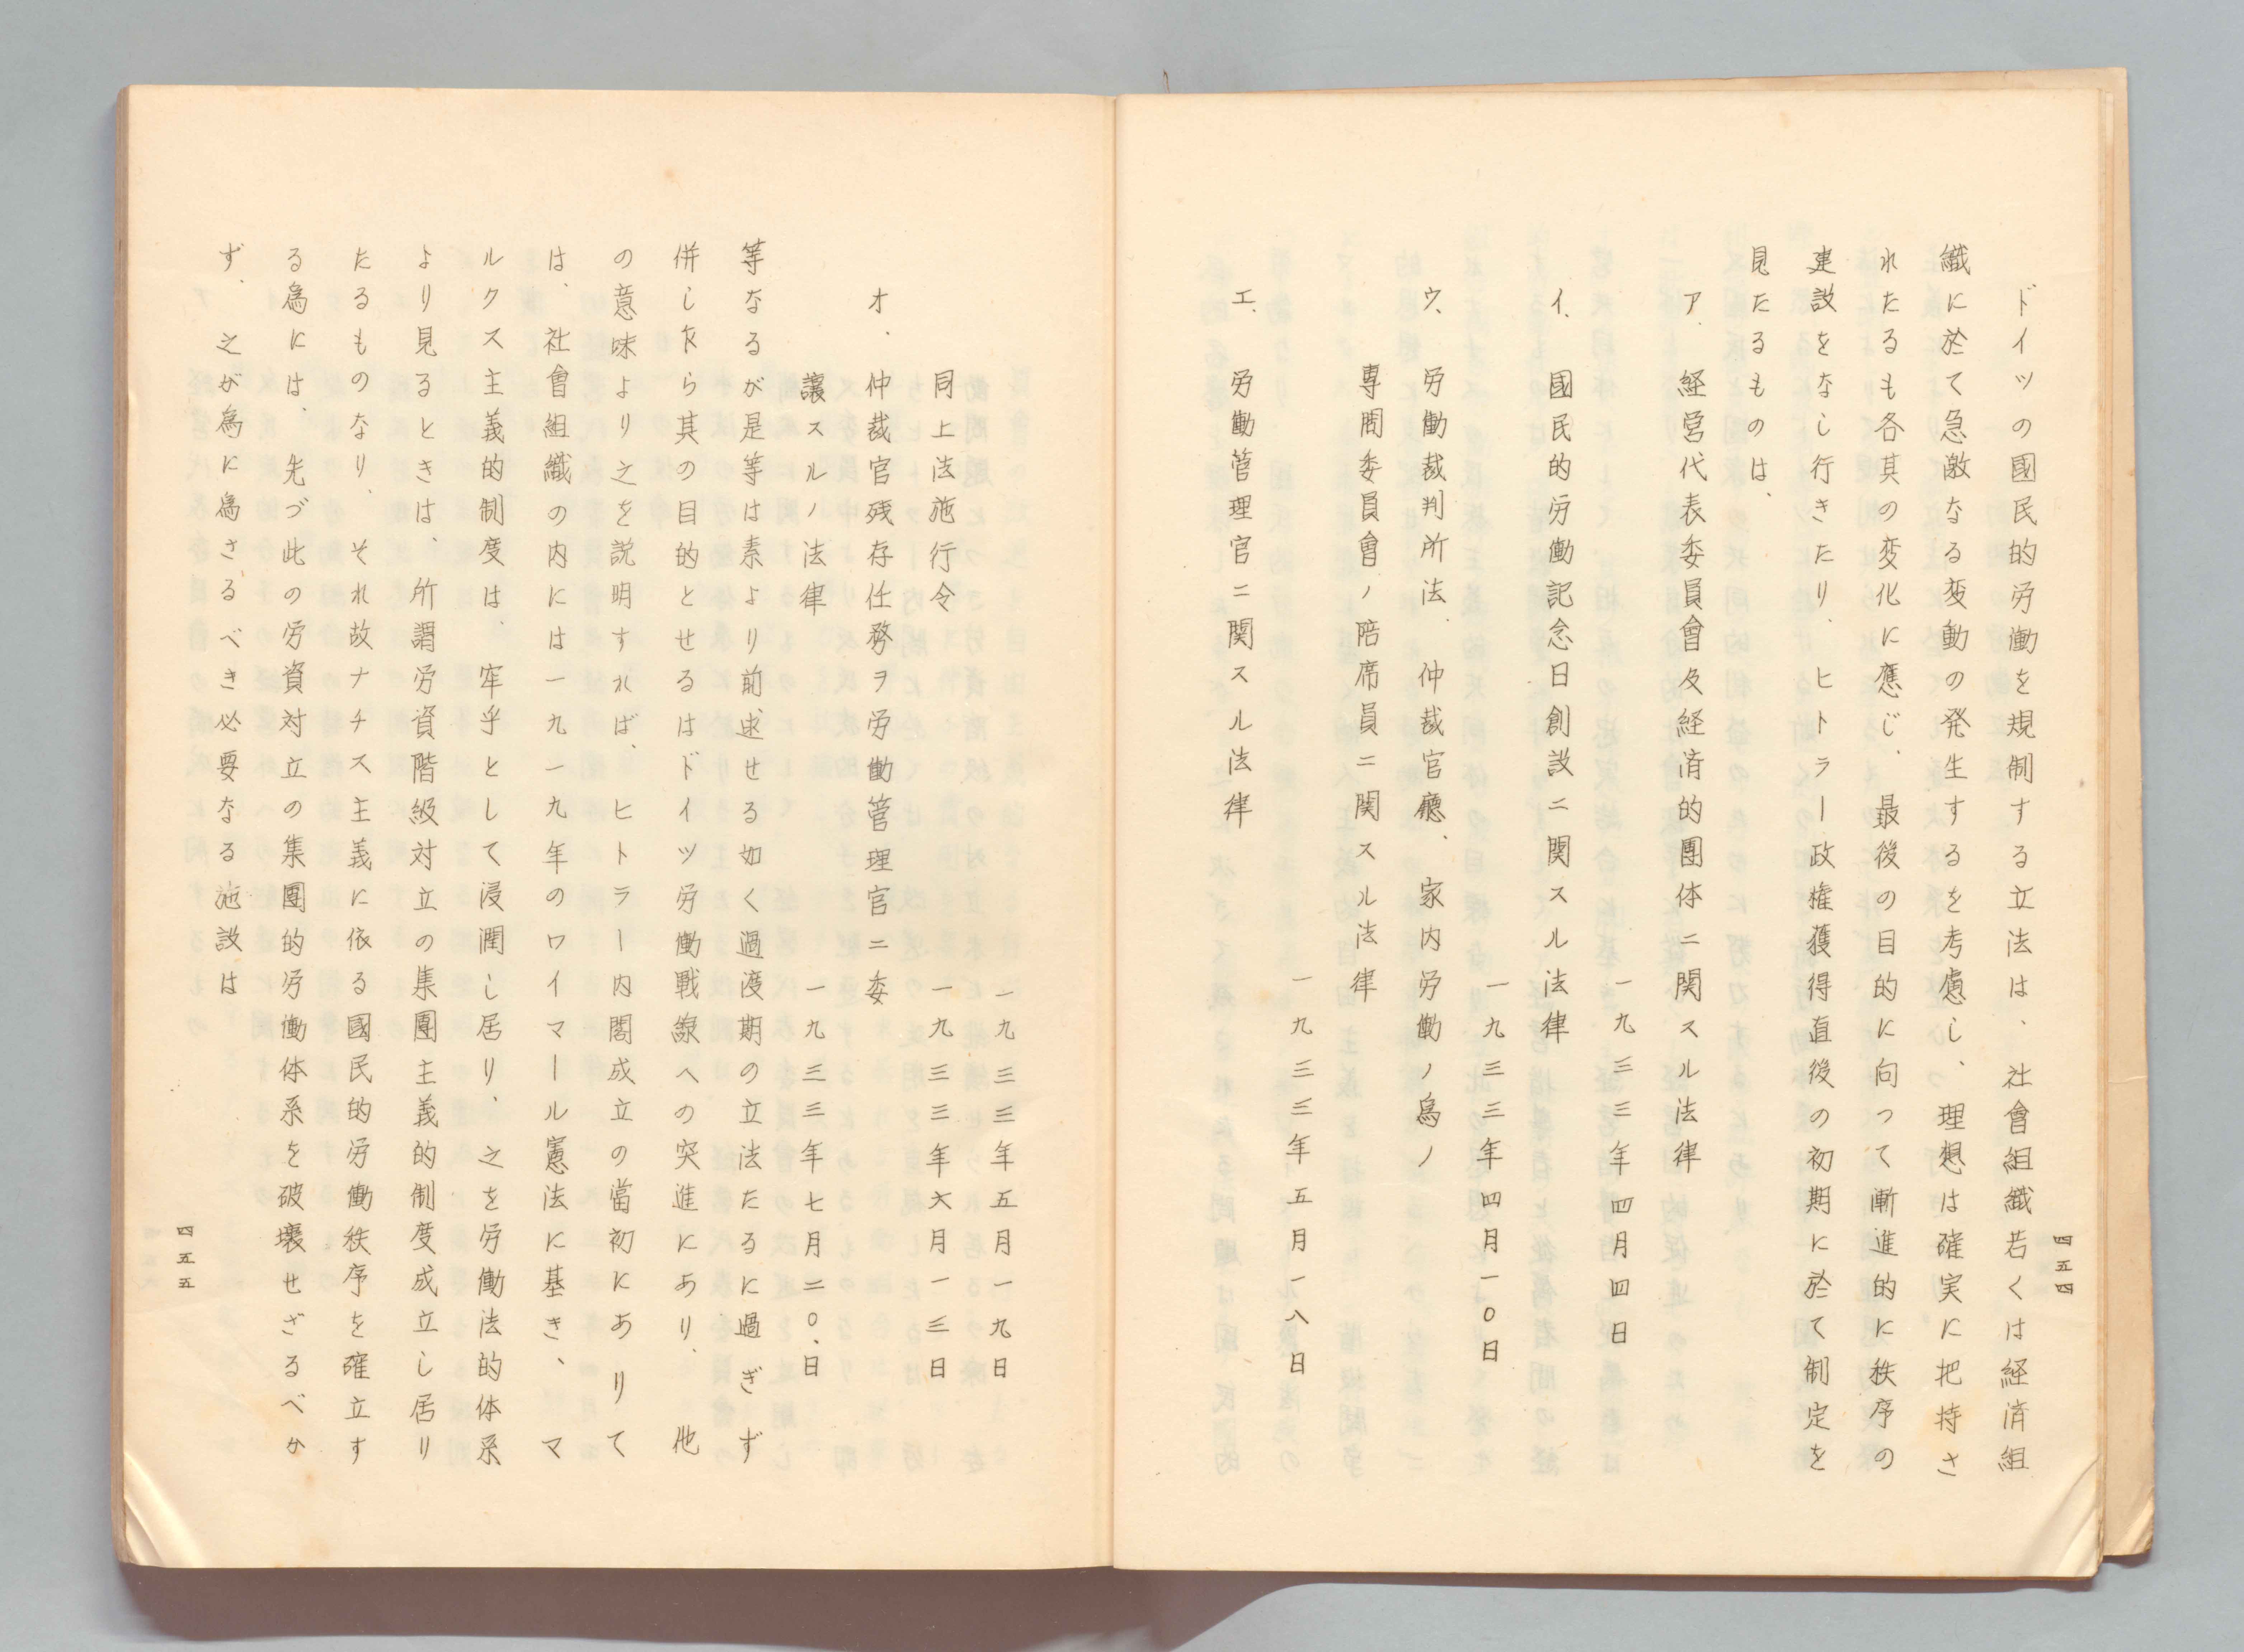 ドイツの國民的労働を規制する立法は、社會組織若くは経済組
織に於て急激なる変動の発生するを考慮し、理想は確実に把持さ
れたるも各其の変化に應じ、最後の目的に向って漸進的に秩序の
建設をなし行きたり、ヒトラー政権獲得直後の初期に於て制定を
見たるものは、
ア、経営代表委員會及経済的團体ニ関スル法律
一九三三年四月四日
イ、國民的労働記念日創設ニ関スル法律
一九三三年四月一〇日
ウ、労働裁判所法、仲裁官廳、家内労働ノ為ノ
専門委員會ノ陪席員ニ関スル法律
一九三三年五月一八日
エ、労働管理官ニ関スル法律
四五四
一九三三年五月一九日
同上法施行令 一九三三年六月一三日
オ、仲裁官残存任務ヲ労働管理官ニ委
譲スルノ法律 一九三三年七月二〇、日
等なるが是等は素より前述せる如く過渡期の立法たるに過ぎず
併し乍ら其の目的とせるはドイツ労働戦線への突進にあり、他
の意味より之を説明すれば、ヒトラー内閣成立の當初にありて
は、社會組織の内には一九一九年のワイマール憲法に基き、マ
ルクス主義的制度は、牢乎として浸潤し居り、之を労働法的体系
より見るときは、所謂労資階級対立の集團主義的制度成立し居り
たるものなり、それ故ナチス主義に依る國民的労働秩序を確立す
る為には、先づ此の労資対立の集團的労働体系を破壊せざるべか
ず、之が為に為さるべき必要なる施設は
四五五